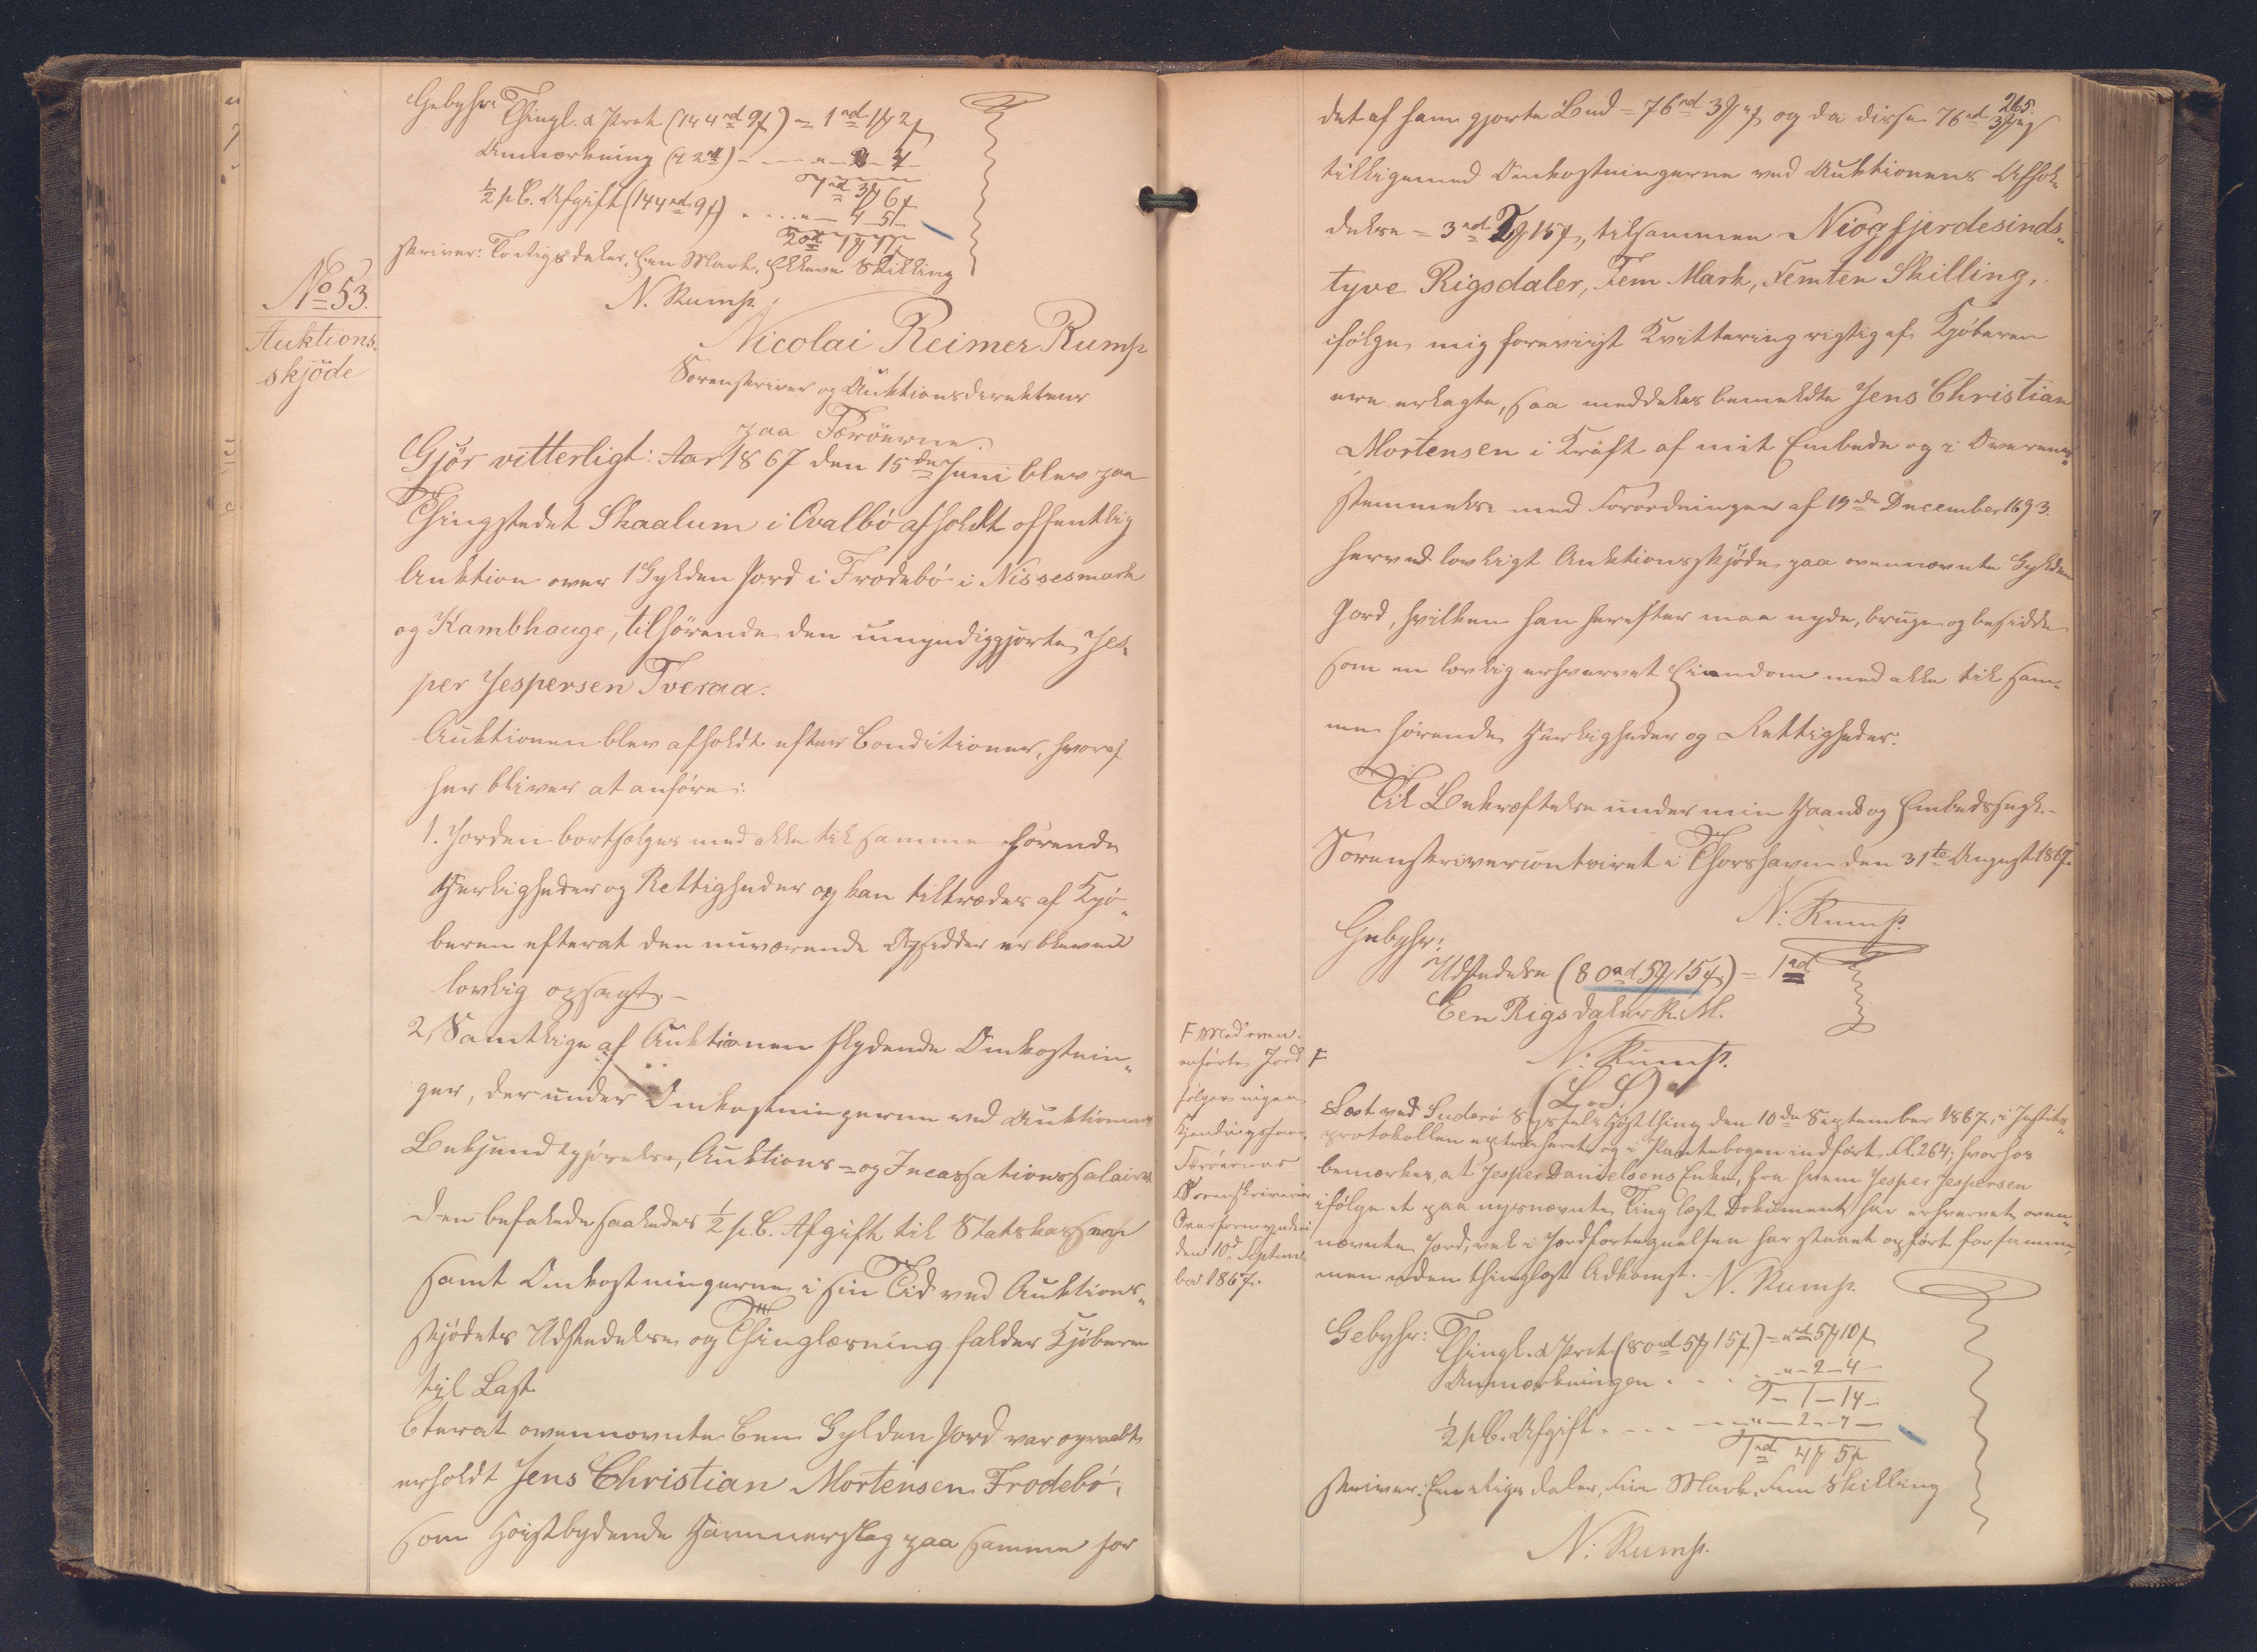 Gebyhr: Thingl. & Prot. (144rd 9s) = 1rd 1m 2s
Anmærkning (" 2m) - - - " - 2 - 4
1rd 3m 6s
½ p.C. Afgift (144rd 9s) . . . " - 4 5
2rd 1m 11s
skriver: To Rigsdaler, Een Mark, Elleve Skilling
N. Rump.
No 53.
Auktions-
skjöde
Nicolai Reimer Rump
Sorenskriver og Auktionsdirekteur
paa Færöerne.
Gjör vitterligt: Aar 1867 den 15de Juni blev paa
Thingstedet Skaalum i Qvalbö afholdt offentlig
Auktion over 1 Gylden Jord i Frodebö i Nissesmark
og Kambhauge, tilhörende den umyndiggjorte Jes-
per Jespersen Tveraa.
Auktionen blev afholdt efter Conditioner, hvoraf
her bliver at anföre:
1. Jorden bortsælges med alle til samme hörende
Herligheder og Rettigheder og kan tiltrædes af Kjö-
beren efterat den nuværende Opsidder er bleven
lovlig opsagt. -
2, Samtlige af Auktionen flydende Omkostnin-
ger, derunder Omkostningerne ved Auktionens
Bekjendtgjörelse, Auktions- og Incassationssalairet
den befalede saakaldes ½ p.C. Afgift til Statskassen
samt Omkostningerne i sin Tid ved Auktions-
skjödets Udstedelse og Thinglæsning falder Kjöberen
til Last.
Efterat ovennævnte Een Gylden Jord var opraabt
erholdt Jens Christian Mortensen Frodebö,
som Höistbydende Hammerslag paa samme for
265.
det af ham gjorte Bud = 76rd 3m "s og da disse 76rd 3m "s
tilligemed Omkostningerne ved Auktionens Afhol-
delse = 3rd 2m 15s, tilsammen Niogfjerdesinds-
tyve Rigsdaler, Fem Mark, Femten Skilling,
ifölge mig foreviist Kvittering rigtig af Kjöberen
ere erlagte, saa meddeles bemeldte Jens Christian
Mortensen i Kraft af mit Embede og i Overeens-
stemmelse med Forordningen af 19de December 1693.
herved lovligt Auktionsskjöde paa ovennævnte Gylden
Jord, hvilken han herefter maa nyde, bruge og besidde
som en lovlig erhvervet Eiendom med alle til sam-
me hörende Herligheder og Rettigheder.
Til Bekræftelse under min Haand og Embedssegl. -
Sorenskrivercontoiret i Thorshavn den 31te August 1867.
N. Rump.
Gebyhr:
Udstedelse (80rd 5m 15s) = 1rd
Een Rigsdaler R. M.
N. Rump.
(L. S.)
F Med oven-
anförte Jord
fölger ingen
Færöernes
Sorenskriveri
den 10d Septem-
ber 1867.
F
Læst ved Suderö Syssels Höstthing den 10de September 1867, i Justits-
protokollen extraheret og i Pantebogen indfört fol. 264; hvorhos
bemærkes, at Jesper Danielsens Enke, fra hvem Jesper Jespersen
ifölge et paa nysnævnte Ting læst Dokument har erhvervet oven-
nævnte Jord, vel i Jordfortegnelsen har staaet opfört for samme,
men uden thinglæst Adkomst. N. Rump.
Gebyhr: Thingl. & Prot. (80rd 5m 15s) = "rd 5m 10s
Anmærkningen . . . . " - 2 - 4
1 - 1 - 14
½ p.C. Afgift . . . - - " - 2 - 7
1rd 4m 5s
skriver: Een Rigsdaler, Fire Mark, Fem Skilling
N. Rump.